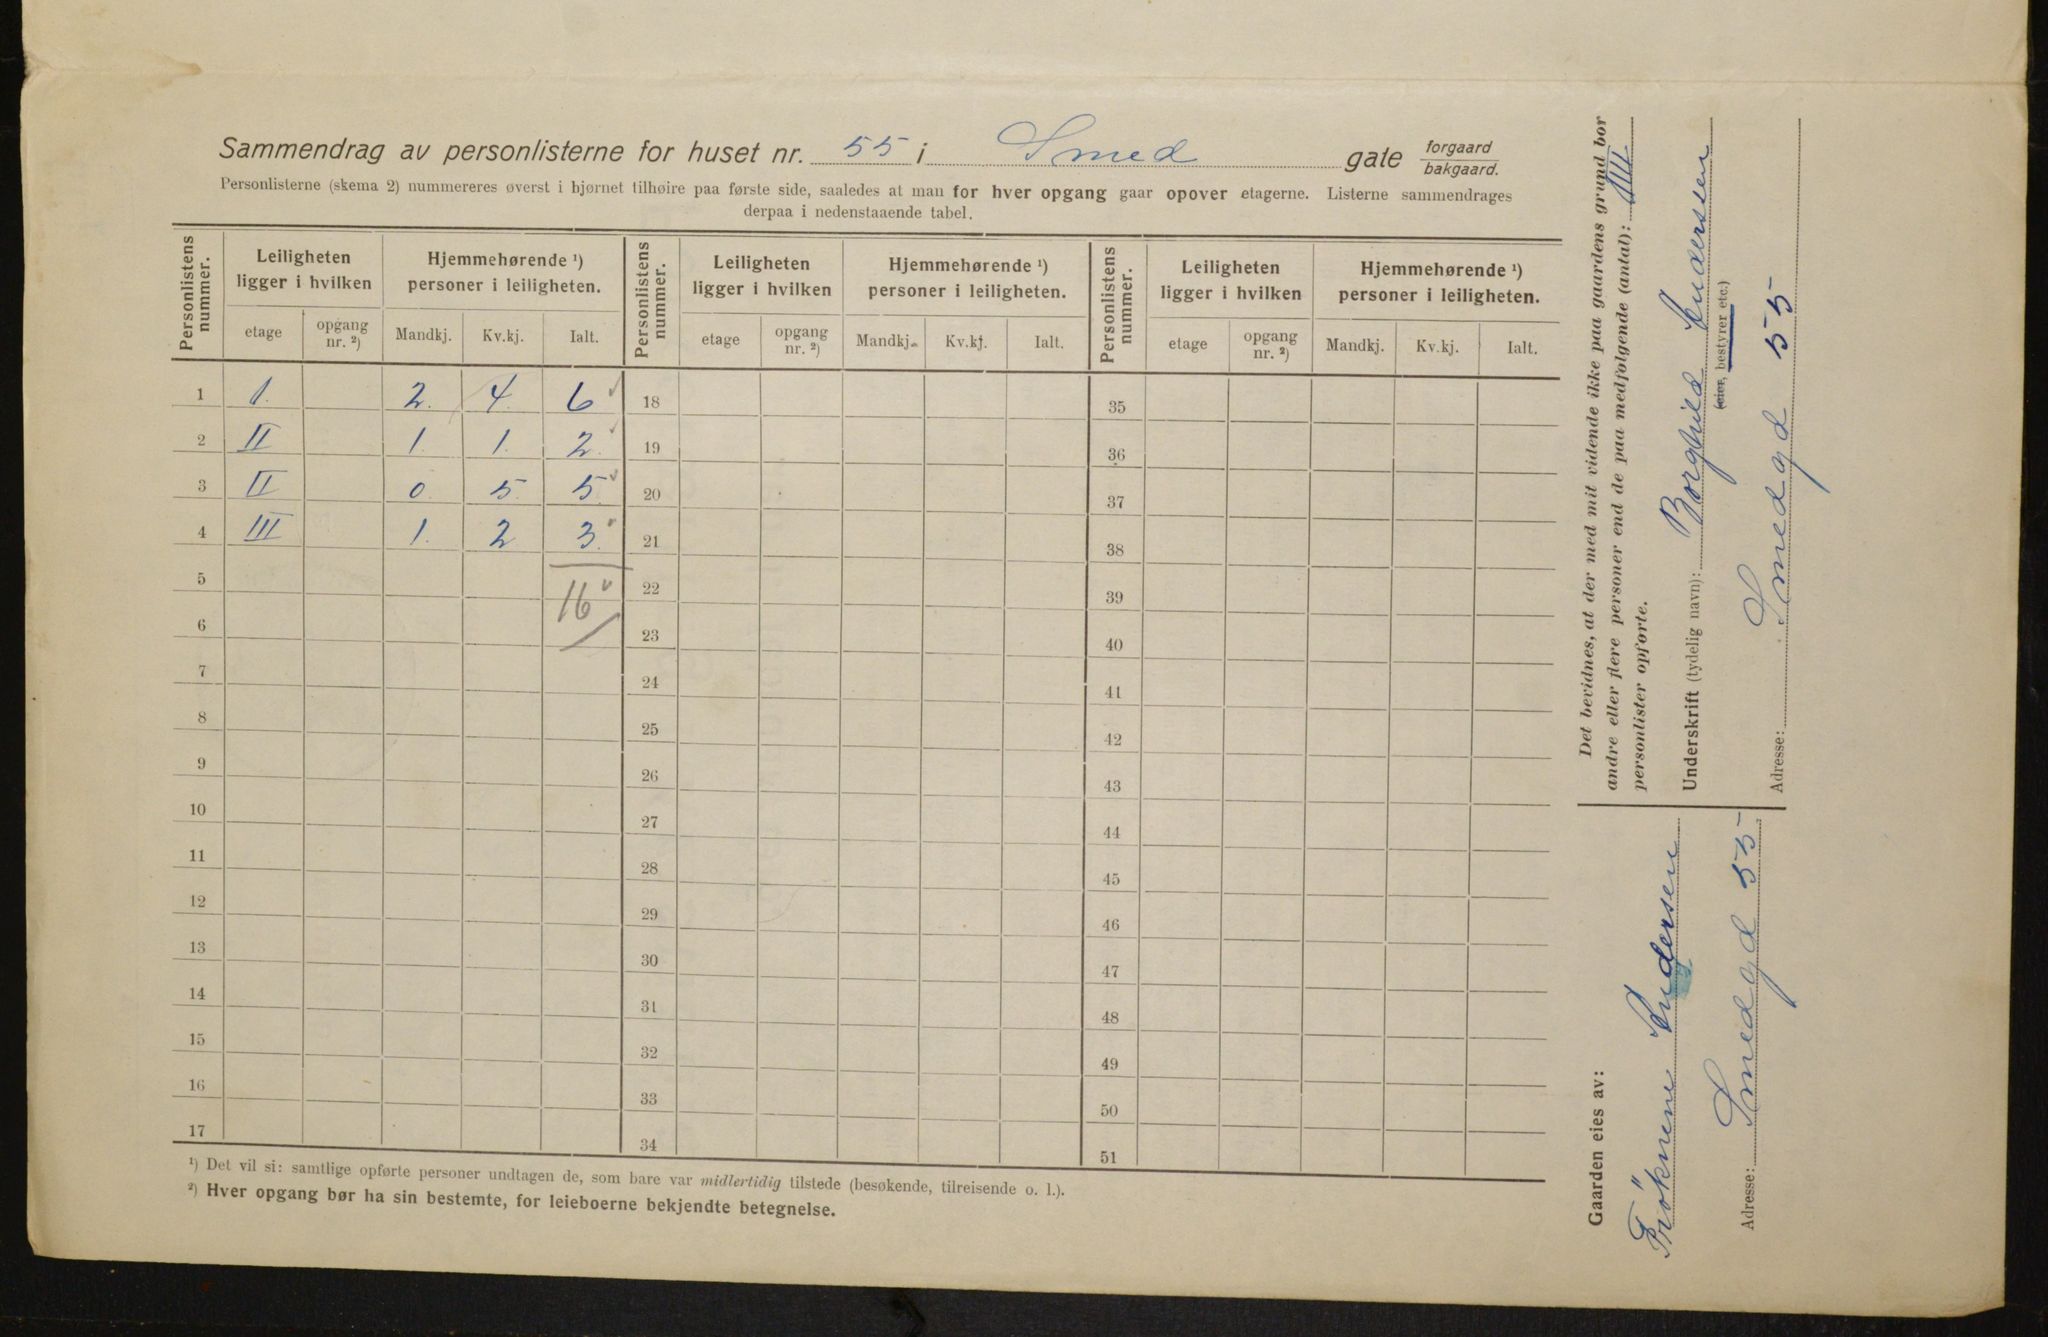 Sammendrag av personlisterne for huset nr. 55 i Smed gate forgaard bakgaard.
Personlisterne (skema 2) nummereres øverst i hjørnet tilhøire paa første side, saaledes at man for hver opgang gaar opover etagerne. Listerne sammendrages
derpaa i nedenstaaende tabel.
Personlistens nummer. Leiligheten ligger i hvilken Hjemmehørende ¹) personer i leiligheten. Personlistens nummer. Leiligheten ligger i hvilken Hjemmehørende ¹) personer i leiligheten. Personlistens nummer. Leiligheten ligger i hvilken Hjemmehørende ¹) personer i leiligheten.
etage opgang nr. ²) Mandkj. Kv.kj. Ialt. etage opgang nr. ²) Mandkj. Kv.kj. Ialt. etage opgang nr. ²) Mandkj. Kv.kj. Ialt.
1 1. 2. 4. 6 18 35
2 II 1. 1. 2. 19 36
3 II 0. 5. 5. 20 37
4 III 1. 2 3. 21 38
5 16 22 39
6 23 40
7 24 41
8 25 42
9 26 43
10 27 44
11 28 45
12 29 46
13 30 47
14 31 48
15 32 49
16 33 50
17 34 51
¹) Det vil si: samtlige opførte personer undtagen de, som bare var midlertidig tilstede (besøkende, tilreisende o. l.).
²) Hver opgang bør ha sin bestemte, for leieboerne bekjendte betegnelse.
Det bevidnes, at der med mit vidende ikke paa gaardens grund bor
andre eller flere personer end de paa medfølgende (antal): IIII
personlister opførte.
Underskrift (tydelig navn): Borghild Andersen
(eier, bestyrer etc.)
Adresse: Smedgd 55
Gaarden eies av:
Frøknene Andersen
Adresse: Smedgd 55